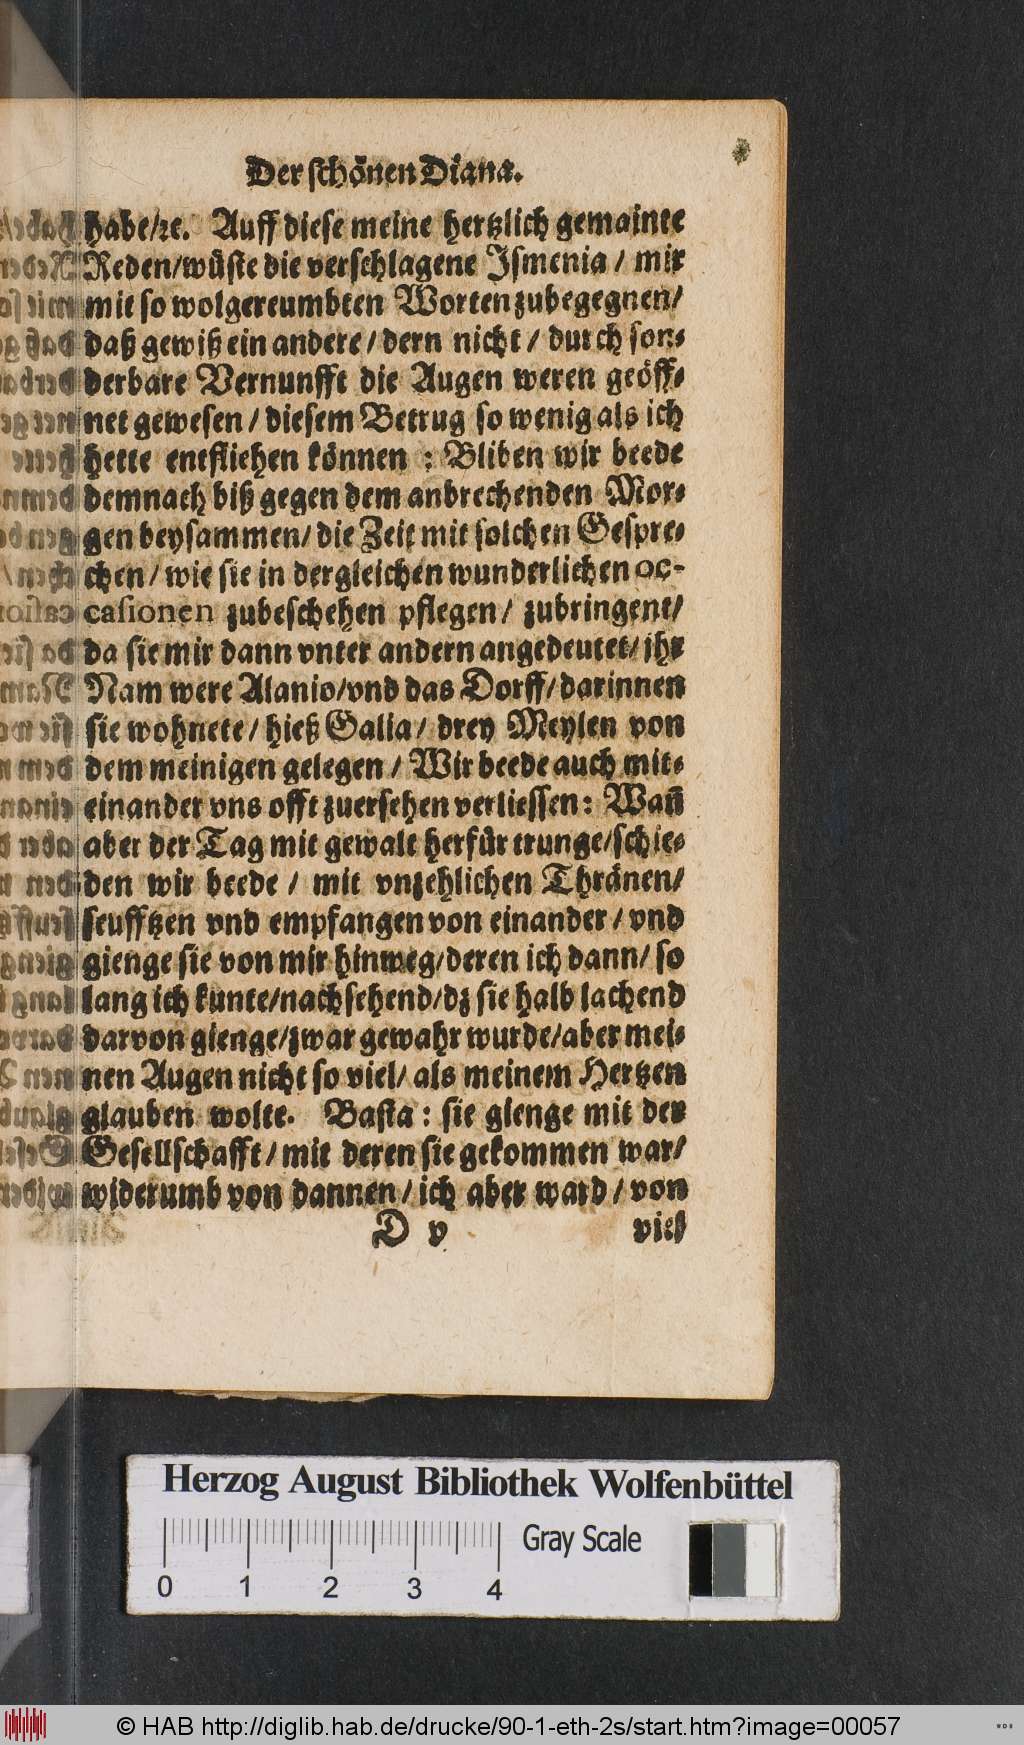 Der schönen Diana.
habe/ꝛc. Auff diese meine hertzlich gemainte
Reden/wüste die verschlagene Ismenia / mir
mit so wolgereumbten Worten zubegegnen/
daß gewiß ein andere / dern nicht / durch son⸗
derbare Vernunfft die Augen weren geöff⸗
net gewesen / diesem Betrug so wenig als ich
hette entfliehen können : Bliben wir beede
demnach biß gegen dem anbrechenden Mor⸗
gen beysammen/ die Zeit mit solchen Gespre⸗
chen / wie sie in dergleichen wunderlichen oc-
casionen zubeschehen pflegen / zubringent/
da sie mir dann vnter andern angedeutet/ ihr
Nam were Alanio/vnd das Dorff/ darinnen
sie wohnete / hieß Galla / drey Meylen von
dem meinigen gelegen / Wir beede auch mit⸗
einander vns offt zuersehen verliessen : Wañ
aber der Tag mit gewalt herfür trunge/schie⸗
den wir beede / mit vnzehlichen Thränen/
seufftzen vnd empfangen von einander / vnd
gienge sie von mir hinweg/deren ich dann/ so
lang ich kunte/nachsehend/dz sie halb lachend
darvon gienge/zwar gewahr wurde/aber mei⸗
nen Augen nicht so viel/ als meinem Hertzen
glauben wolte. Basta : sie gienge mit der
Gesellschafft / mit deren sie gekommen war/
widerumb von dannen / ich aber ward / von
D v viel
Herzog August Bibliothek Wolfenbüttel
Gray Scale
0 1 2 3 4
© HAB http://diglib.hab.de/drucke/90-1-eth-2s/start.htm?image=00057